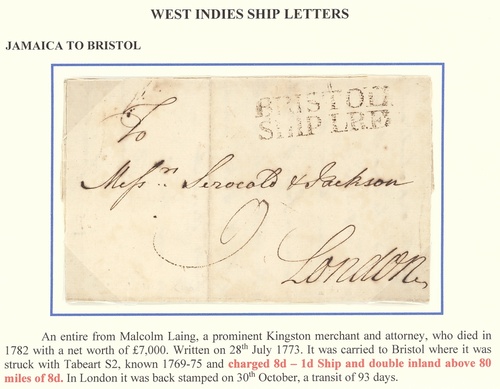 WEST INDIES SHIP LETTERS
JAMAICA TO BRISTOL
BRISTOL
SHIP LRE
To
Messrs. Serocold & Jackson
9
London
An entire from Malcolm Laing, a prominent Kingston merchant and attorney, who died in
1782 with a net worth of £7,000. Written on 28th July 1773. It was carried to Bristol where it was
struck with Tabeart S2, known 1769-75 and charged 8d – 1d Ship and double inland above 80
miles of 8d. In London it was back stamped on 30th October, a transit of 93 days.